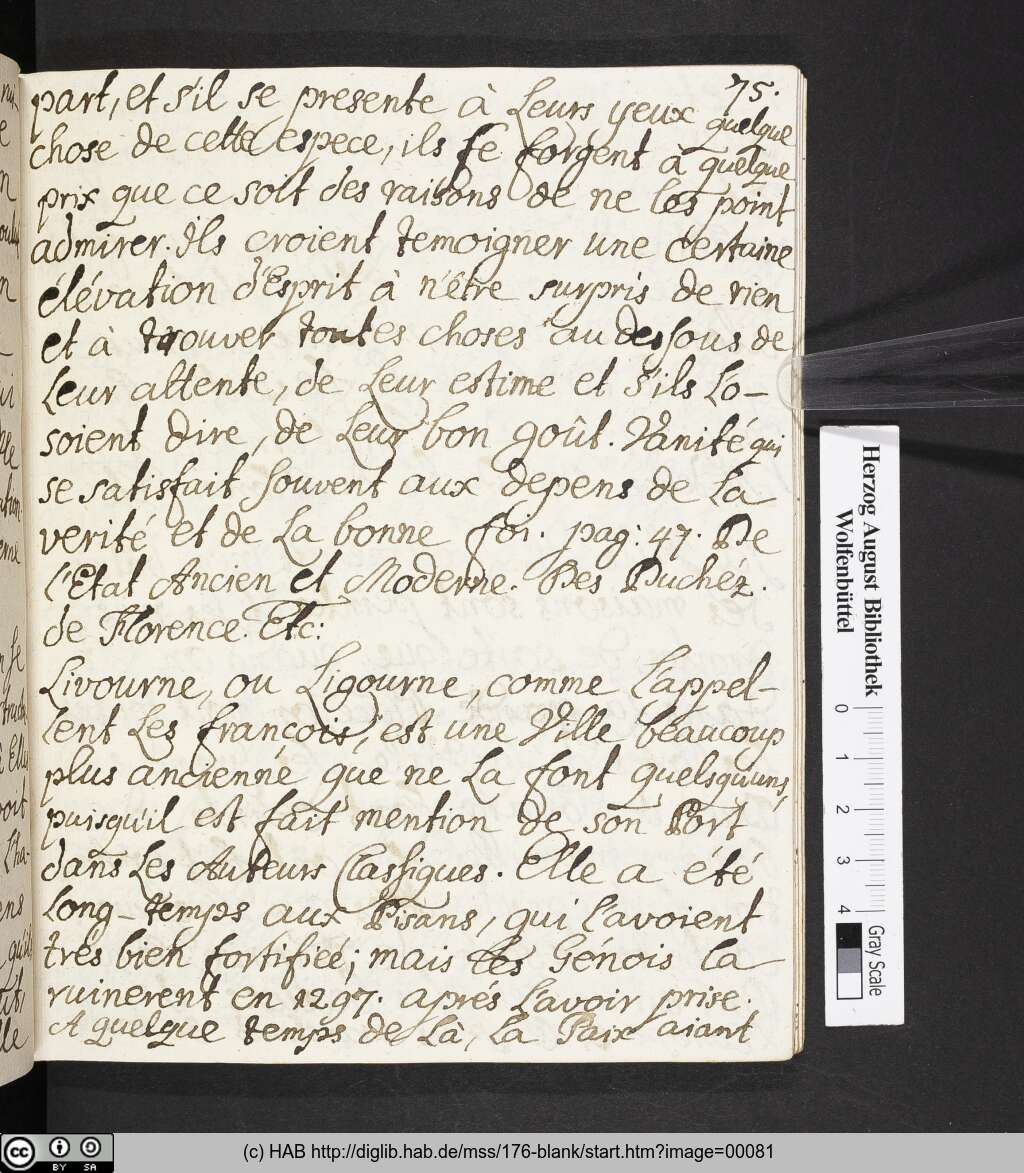 75.
part, et s'il se presente à Leurs yeux quelque
chose de cette espece, ils se forgent à quelque
prix que ce soit des raisons de ne les point
admirer. Ils croient temoigner une certaine
élévation d'Esprit à n'être surpris de rien
et à trouver toutes choses au dessous de
Leur attente, de Leur estime et s'ils Lo-
soient dire, de Leur bon goût. Vanité qui
se satisfait souvent aux depens de La
verité et de La bonne foi. pag: 47. De
l'Etat Ancien et Moderne. Des Duchéz.
de Florence. Etc:
Livourne, ou Ligourne, comme L'appel-
lent Les françois, est une Ville beaucoup
plus ancienne que ne La font quelsqu'uns,
puisqu'il est fait mention de son Port
dans Les Auteurs Classiques. Elle a été
Long-temps aux Pisans, qui l'avoient
tres bien fortifieé; mais Les Génois La
ruinerent en 1297. aprés L'avoir prise.
A quelque temps de Là, La Paix aiant
Herzog August Bibliothek
Wolfenbüttel
0 1 2 3 4
Gray Scale
cc BY SA
(c) HAB http://diglib.hab.de/mss/176-blank/start.htm?image=00081